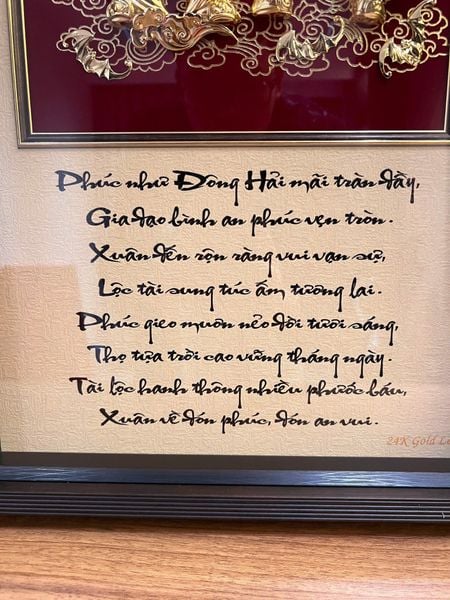 Phúc như Đông Hải mãi tràn đầy,
Gia đạo bình an phúc vẹn tròn.
Xuân đến rộn ràng vui vạn sự,
Lộc tài sung túc ấm tương lai.
Phúc gieo muôn nẻo đời tươi sáng,
Thọ tựa trời cao vững tháng ngày.
Tài lộc hanh thông nhiều phước báu,
Xuân về đón phúc, đón an vui.
24K Gold